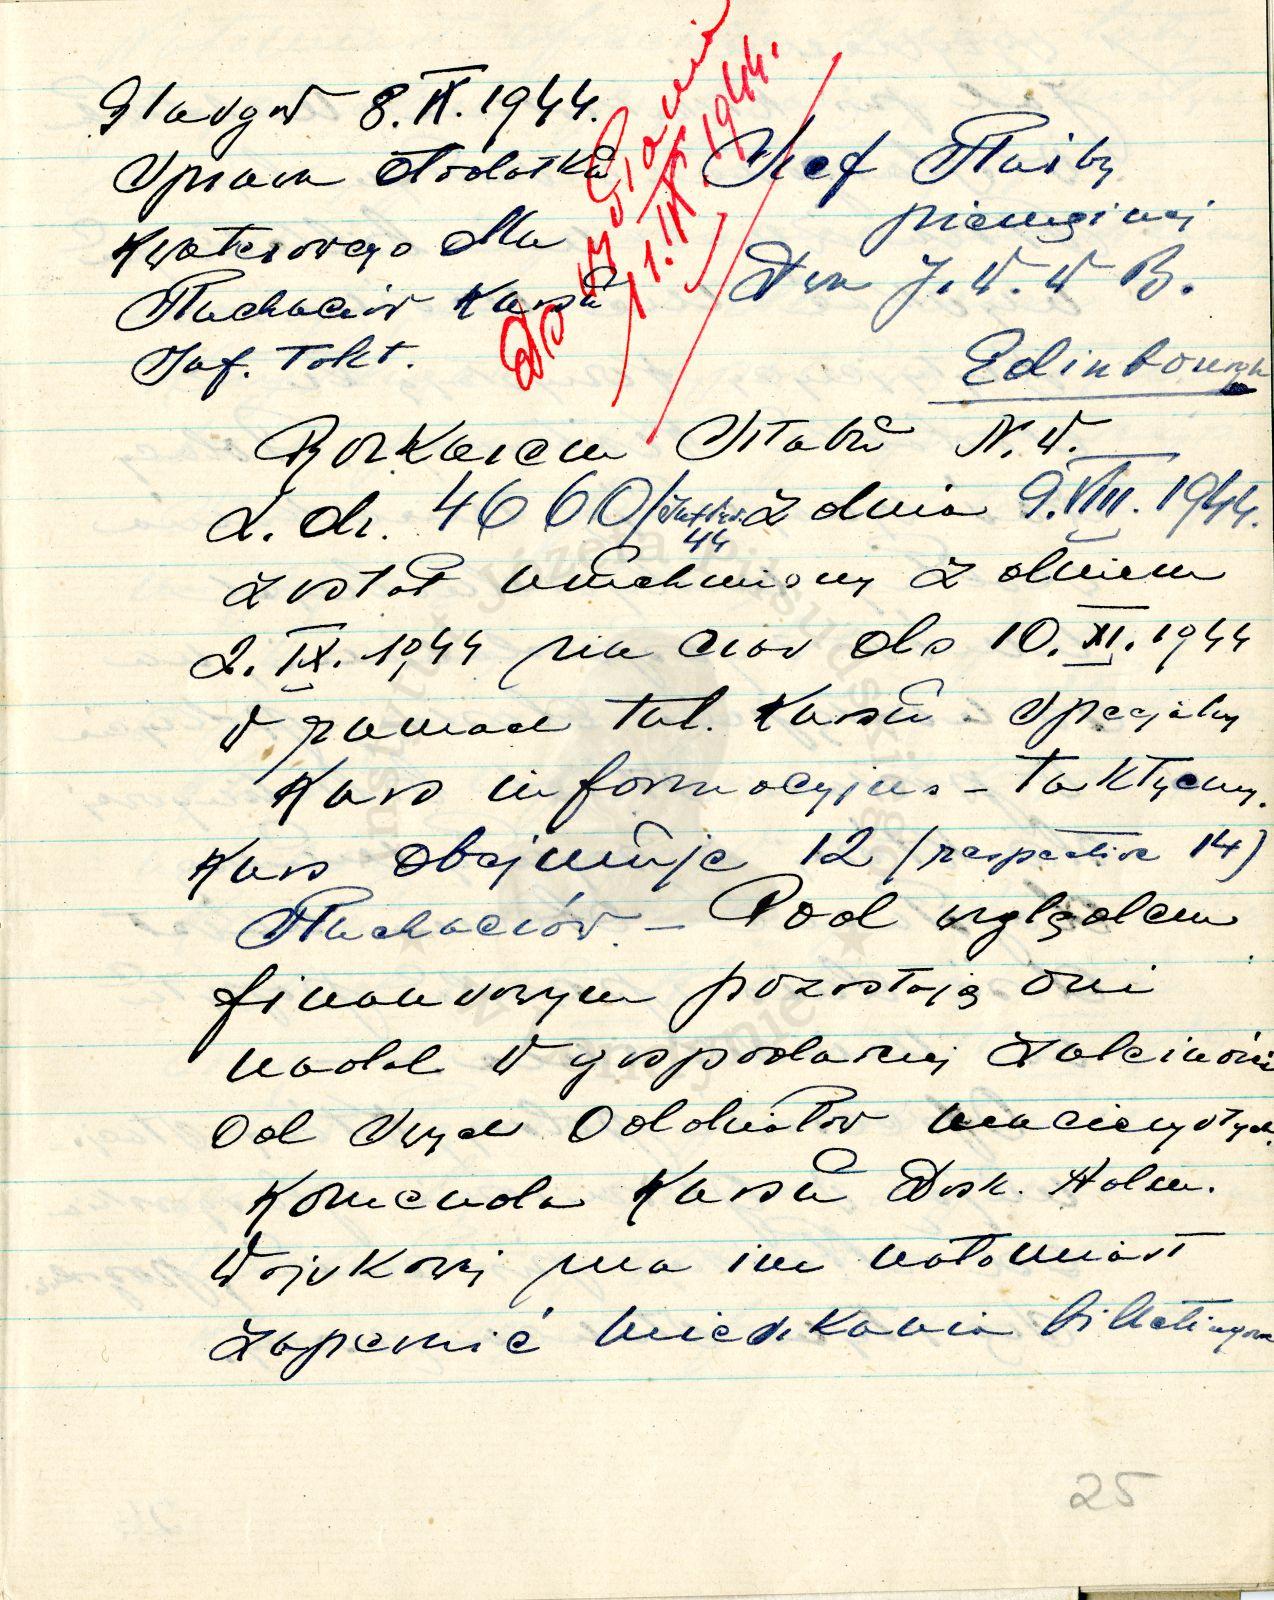 Glasgow 8.IX.1944.
Sprawa dodatku
kwaterowego dla
słuchaczów kursu
Inf. Takt.
Do wysłania
11.IX.1944.
Szef Służby
pieniężnej
Dwa J. W. W B.
Edinbourgh
Rozkazem Sztabu N.W.
L.dz. 4660/ 44 z dnia 9.VIII.1944.
został uruchmiony z dniem
2.IX.1944 na czas do 10.XI.1944
w ramach tut. Kursu - Specjalny
Kurs informacyjno - taktyczny.
Kurs obejmuje 12 (respective 14)
Słuchaczów. - Pod względem
finansowym pozostają oni
nadal w gospodarczej zależności
od swych Oddziałów macierzystych.
Komenda Kursu Dosk. Adm.
Wojskowej ma im natomiast
zapewnić mieszkania billetingowe
25